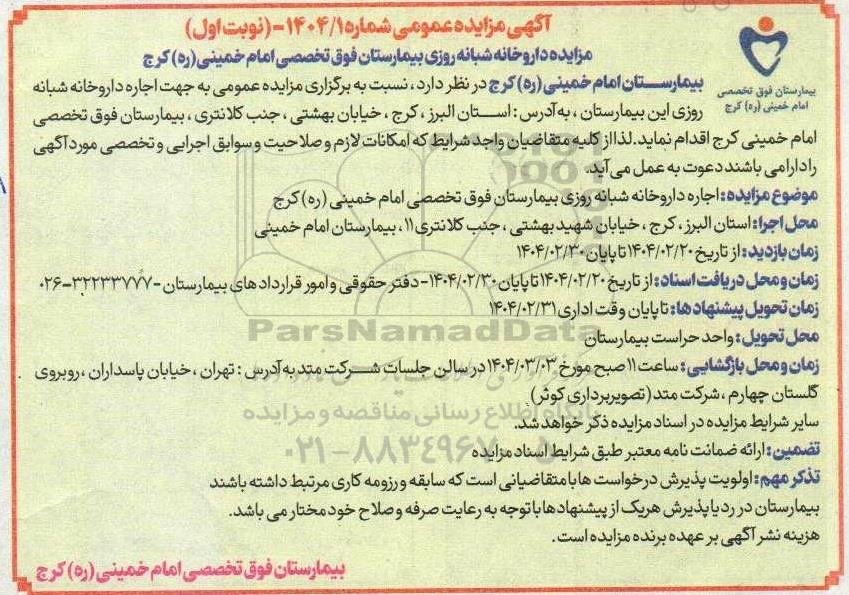 آگهی مزایده عمومی شماره ۱۴۰۴/۱-(نوبت اول)
مزایده داروخانه شبانه روزی بیمارستان فوق تخصصی امام خمینی(ره) کرج
بیمارستان فوق تخصصی
امام خمینی (ره) کرج
بیمارستان امام خمینی (ره) کرج در نظر دارد، نسبت به برگزاری مزایده عمومی به جهت اجاره داروخانه شبانه
روزی این بیمارستان ، به آدرس : استان البرز ، کرج ، خیابان بهشتی ، جنب کلانتری ، بیمارستان فوق تخصصی
امام خمینی کرج اقدام نماید. لذا از کلیه متقاضیان واجد شرایط که امکانات لازم و صلاحیت و سوابق اجرایی و تخصصی مورد آگهی
را دارا می باشند دعوت به عمل می آید.
موضوع مزایده : اجاره داروخانه شبانه روزی بیمارستان فوق تخصصی امام خمینی (ره) کرج
محل اجرا : استان البرز ، کرج ، خیابان شهید بهشتی ، جنب کلانتری ۱۱ ، بیمارستان امام خمینی
زمان بازدید : از تاریخ ۱۴۰۴/۰۲/۲۰ تا پایان ۱۴۰۴/۰۲/۳۰
زمان و محل دریافت اسناد : از تاریخ ۱۴۰۴/۰۲/۲۰ تا پایان ۱۴۰۴/۰۲/۳۰- دفتر حقوقی و امور قراردادهای بیمارستان -۳۲۲۳۳۷۷۷-۰۲۶
زمان تحویل پیشنهادها : تا پایان وقت اداری ۱۴۰۴/۰۲/۳۱
محل تحویل : واحد حراست بیمارستان
ParsNamadData
زمان و محل بازگشایی : ساعت ۱۱ صبح مورخ ۱۴۰۴/۰۳/۰۳ در سالن جلسات شرکت متد به آدرس : تهران ، خیابان پاسداران ، روبروی
گلستان چهارم ، شرکت متد (تصویربرداری کوثر)
پایگاه اطلاع رسانی مناقصه و مزایده
سایر شرایط مزایده در اسناد مزایده ذکر خواهد شد.
۰۲۱-۸۸۳۴۹۶۷۰-۵
تضمین : ارائه ضمانت نامه معتبر طبق شرایط اسناد مزایده
تذکر مهم : اولویت پذیرش درخواست ها با متقاضیانی است که سابقه و رزومه کاری مرتبط داشته باشند
بیمارستان در رد یا پذیرش هریک از پیشنهادها با توجه به رعایت صرفه و صلاح خود مختار می باشد.
هزینه نشر آگهی بر عهده برنده مزایده است.
بیمارستان فوق تخصصی امام خمینی (ره) کرج